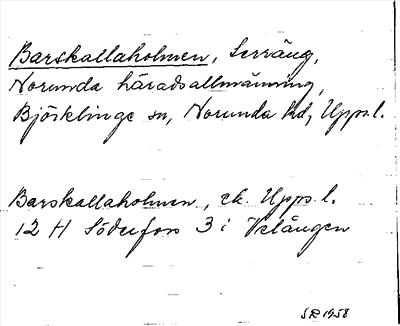 Barskallaholmen, Terräng,
Norunda häradsallmänning,
Björklinge sn, Norunda hd, Upps.l.
Barskallaholmen, ek. Upps.l.
12 H Söderfors 3 i Velången
SR 1958